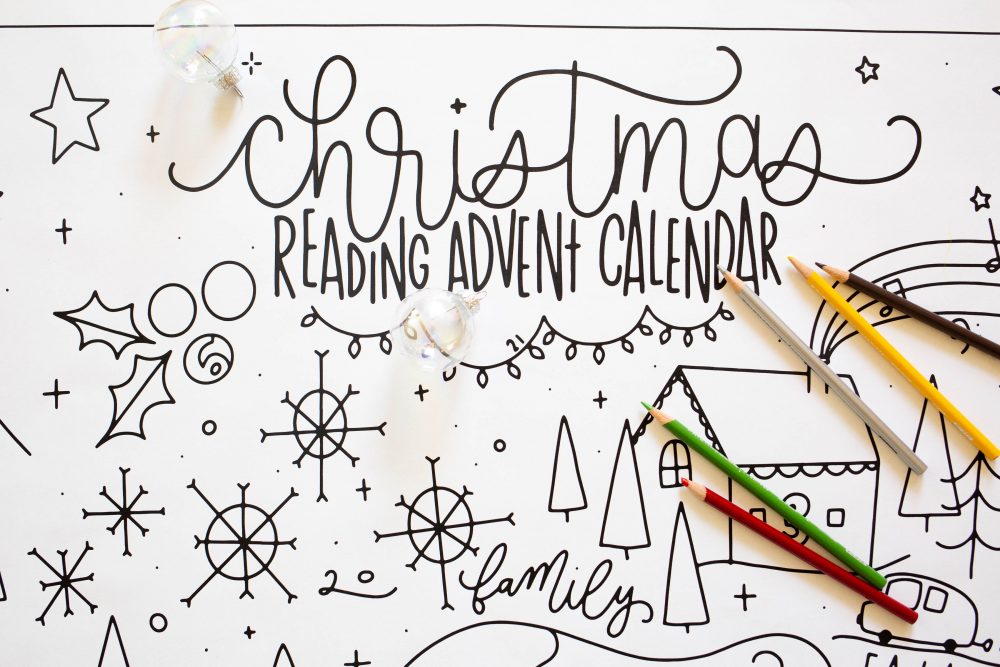 christmas
READING ADVENT CALENDAR
21
6
20
family